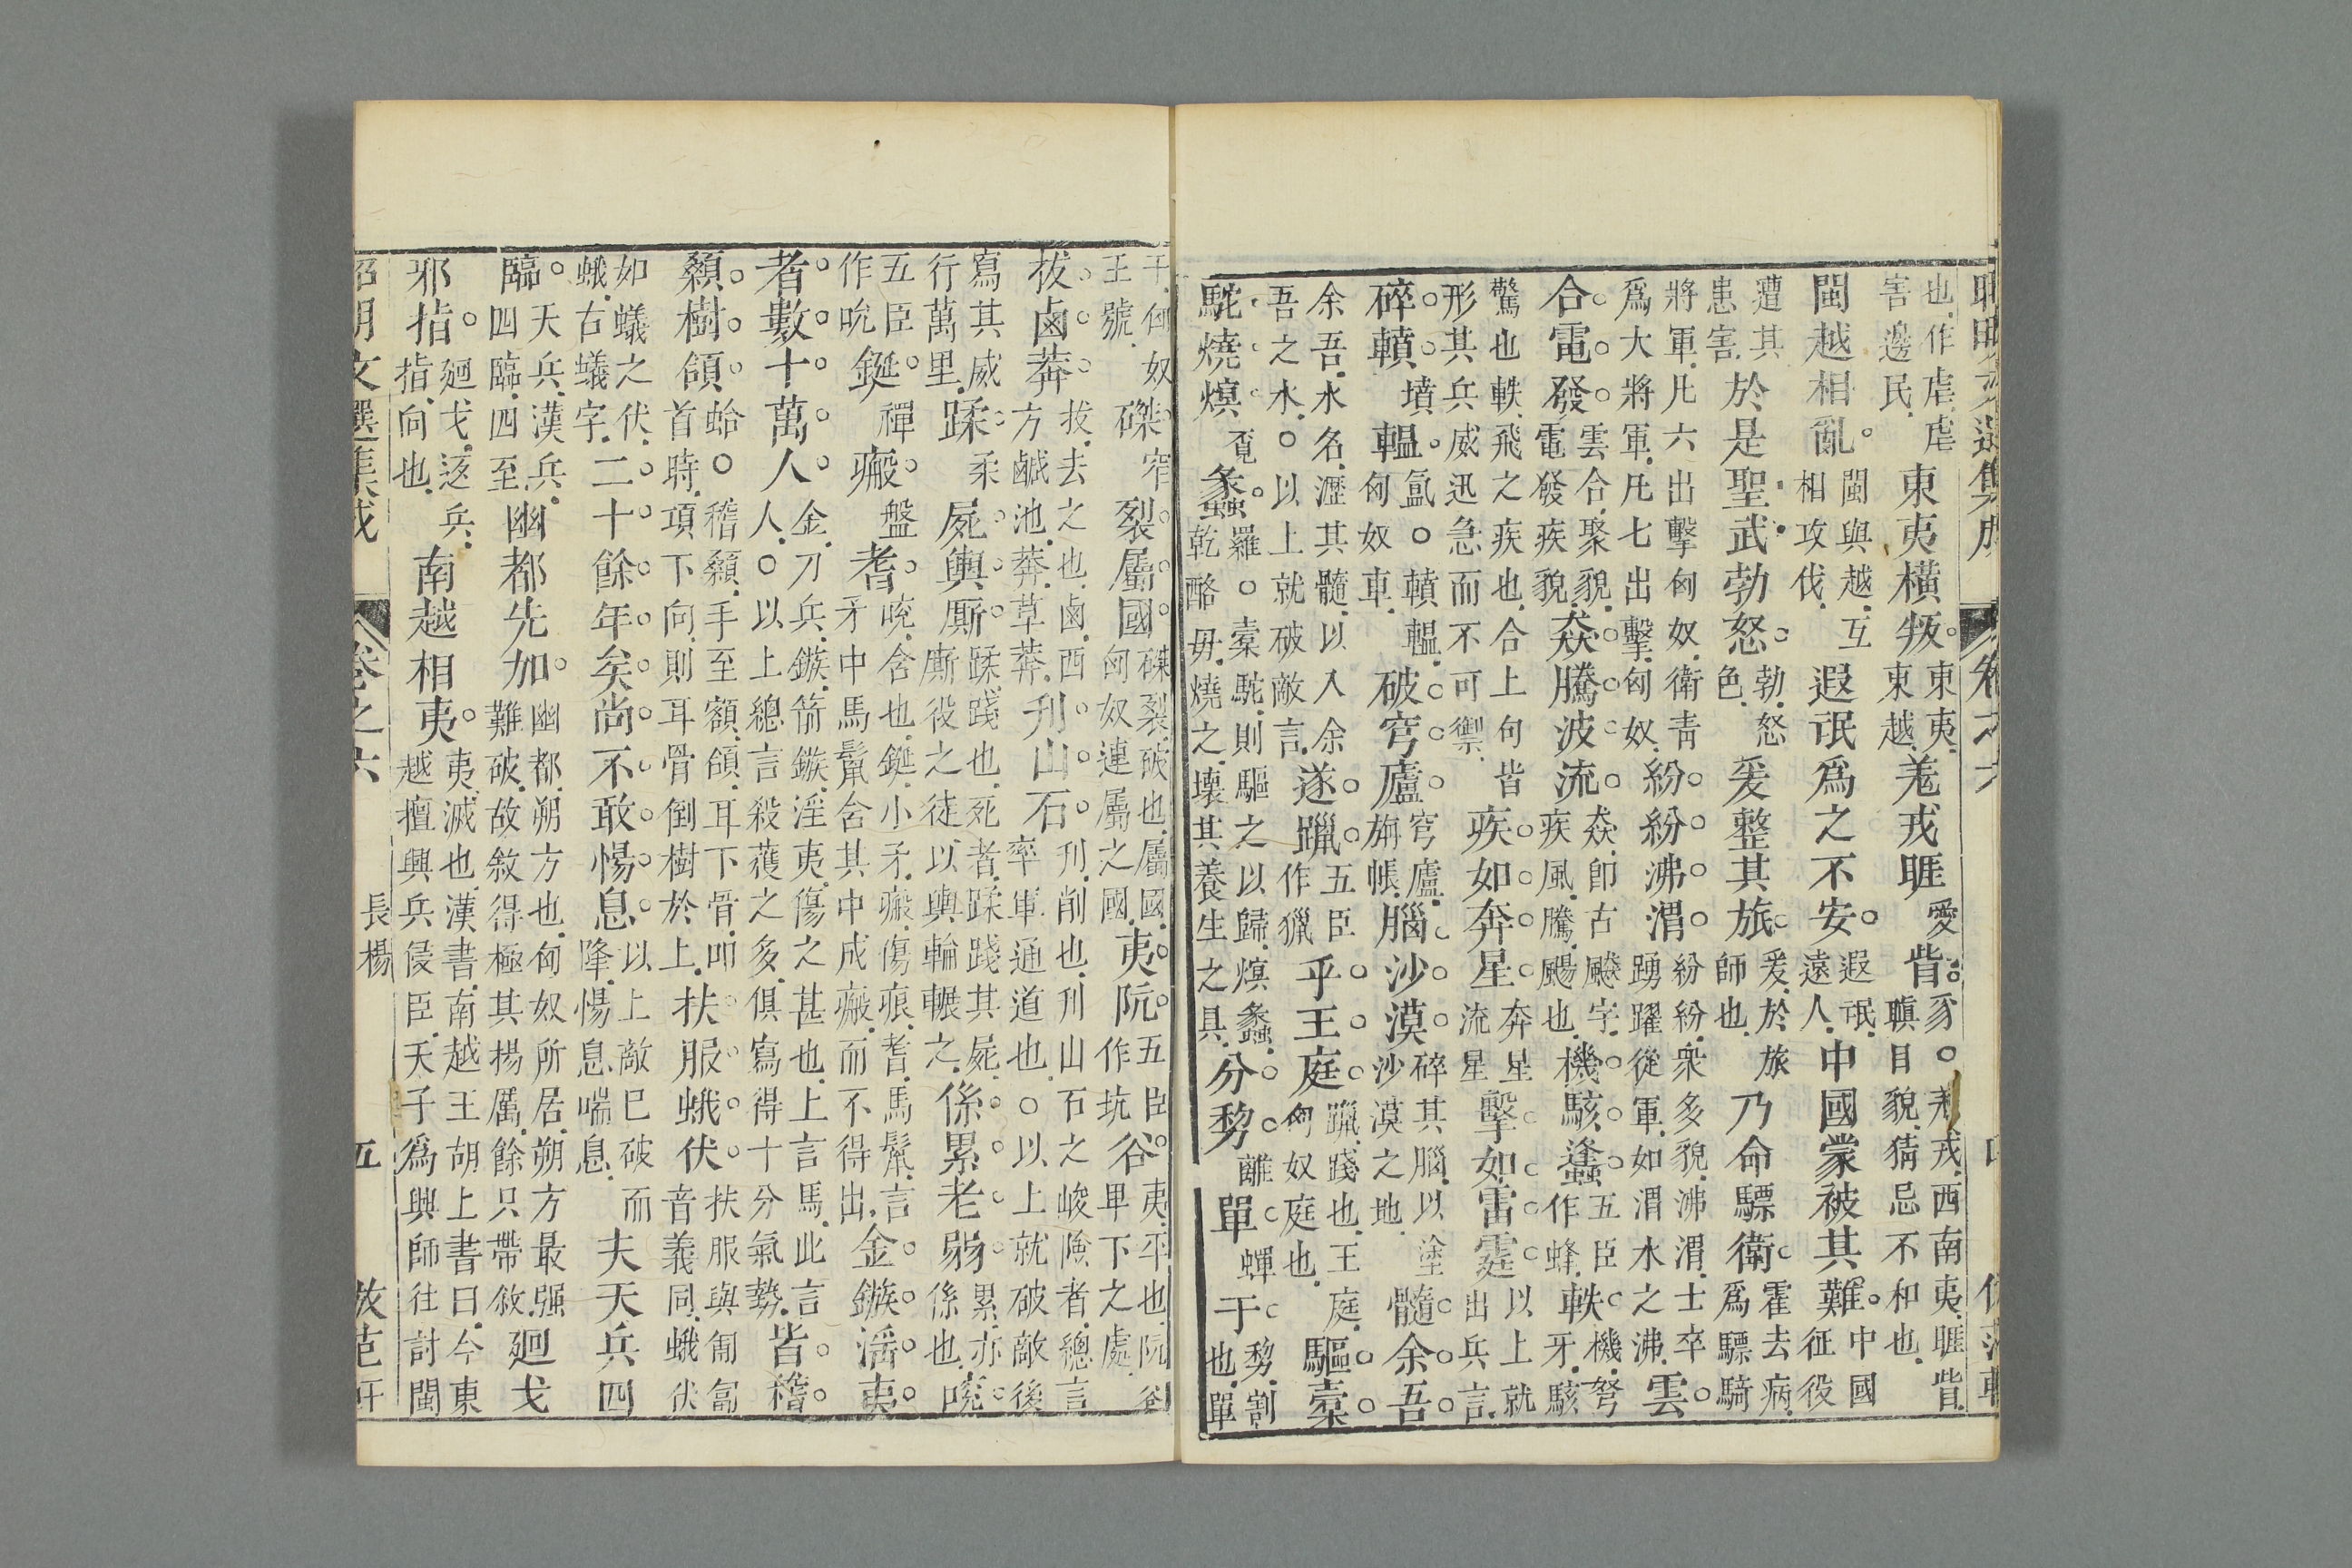 也作虐虐
害邊民東夷橫叛東夷東越羗戎睚愛眥豸○羗戎西南夷睚眥瞋目貌猜忌不和也
閩越相亂閩與越互相攻伐遐氓爲之不安遐氓遠人中國蒙被其難中國征役
遭其患害於是聖武勃怒勃怒色爰整其旅爰於旅師也乃命驃衛霍去病爲驃騎
將軍凡六出擊匈奴衛青爲大將軍凡七出擊匈奴紛紛沸渭紛紛衆多貌沸渭士卒踴躍從軍如渭水之沸雲
合電發雲合聚貌電發疾貌猋騰波流猋卽古飈字疾風騰颺也機駭蠭五臣作蜂軼機弩牙駭
驚也軼飛之疾也合上句皆形其兵威迅急而不可禦疾如奔星奔星流星擊如雷霆以上就出兵言
碎轒墳轀氳○轒轀匈奴車破穹廬穹廬旃帳腦沙漠碎其腦以塗沙漠之地髓余吾
余吾水名瀝其髓以入余吾之水○以上就破敵言遂躐五臣作獵乎王庭躐踐也王庭匈奴庭也驅橐
駝燒熐覓蠡羅○橐駝則驅之以歸熐蠡乾酪母燒之壞其養生之具分剺離單蟬于剺割也單
于匈奴王號磔窄裂屬國磔裂破也屬國匈奴連屬之國夷阬五臣作坑谷夷平也阬谷卑下之處
拔鹵莽拔去之也鹵西方鹹池莽草莽刋山石刋削也刋山石之峻險者總言率軍通道也○以上就破敵後
寫其威行萬里蹂柔屍輿厮蹂踐也死者蹂踐其屍廝役之徒以輿輪輾之係累老弱累亦係也吮
五臣作吮鋋禪瘢盤耆吮含也鋋小矛瘢傷痕耆馬鬛言矛中馬鬛含其中成瘢而不得出金鏃淫夷
者數十萬人金刀兵鏃箭鏃淫夷傷之甚也上言馬此言人○以上總言殺獲之多俱寫得十分氣勢皆稽
顙樹頜蛤○稽顙手至額頜耳下骨叩首時項下向則耳骨倒樹於上扶服蛾伏扶服與匍匐音義同蛾伏
如蟻之伏蛾右蟻字二十餘年矣尚不敢惕息以上敵巳破而降惕息喘息夫天兵四
臨天兵漢兵四臨四至幽都先加幽都朔方也匈奴所居朔方最强難破故敘得極其揚厲餘只帶敘廻戈
邪指廻戈返兵指向也南越相夷夷滅也漢書南越王胡上書曰今東越擅興兵侵臣天子爲興師往討閩
昭明文選集成 卷之六 長楊 五